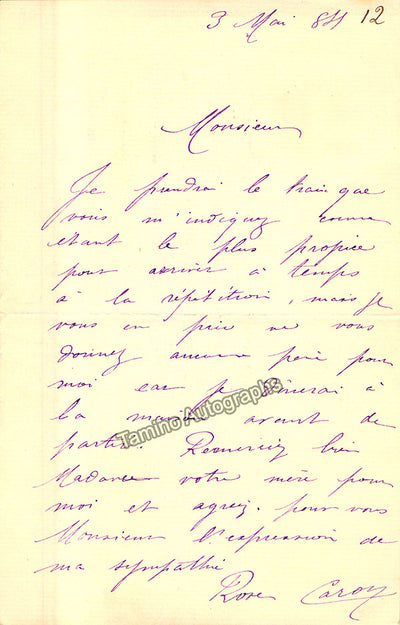 3 Mai 84 12
Monsieur
Je prendrai le train que
vous m'indiquez comme
étant le plus propice
pour arriver à temps
à la répétition, mais je
vous en prie ne vous
donnez aucune peine pour
moi car je dinerai à
la maison avant de
partir. Remerciez bien
Madame votre mère pour
moi et agréez pour vous
Monsieur l'expression de
ma sympathie
Rose Caron
Tamino Autographs